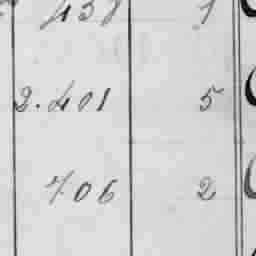 437 1
2.401 5
706 2